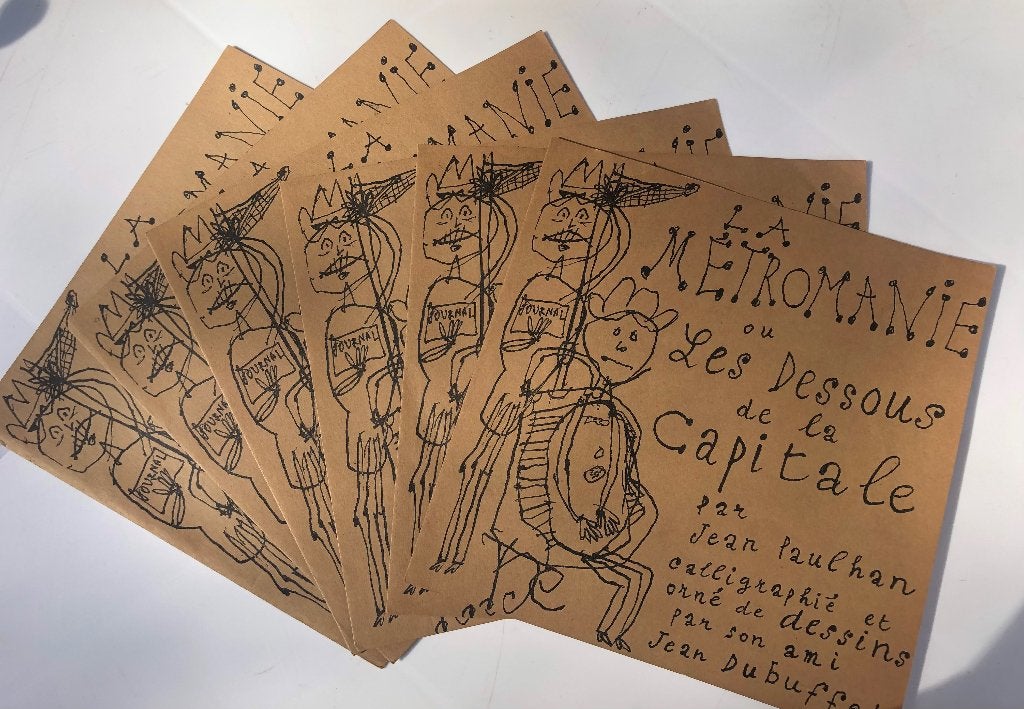 LA
MÉTROMANiE
ou
Les Dessous
de la
Capitale
par
Jean Paulhan
calligraphié et
orné de dessins
par son ami
Jean Dubuffe
JOURNAL
JOURNAL
JOURNAL
JOURNAL
JOURNAL
JOURNAL
LA
MANiE
LA
MANiE
NiE
NiE